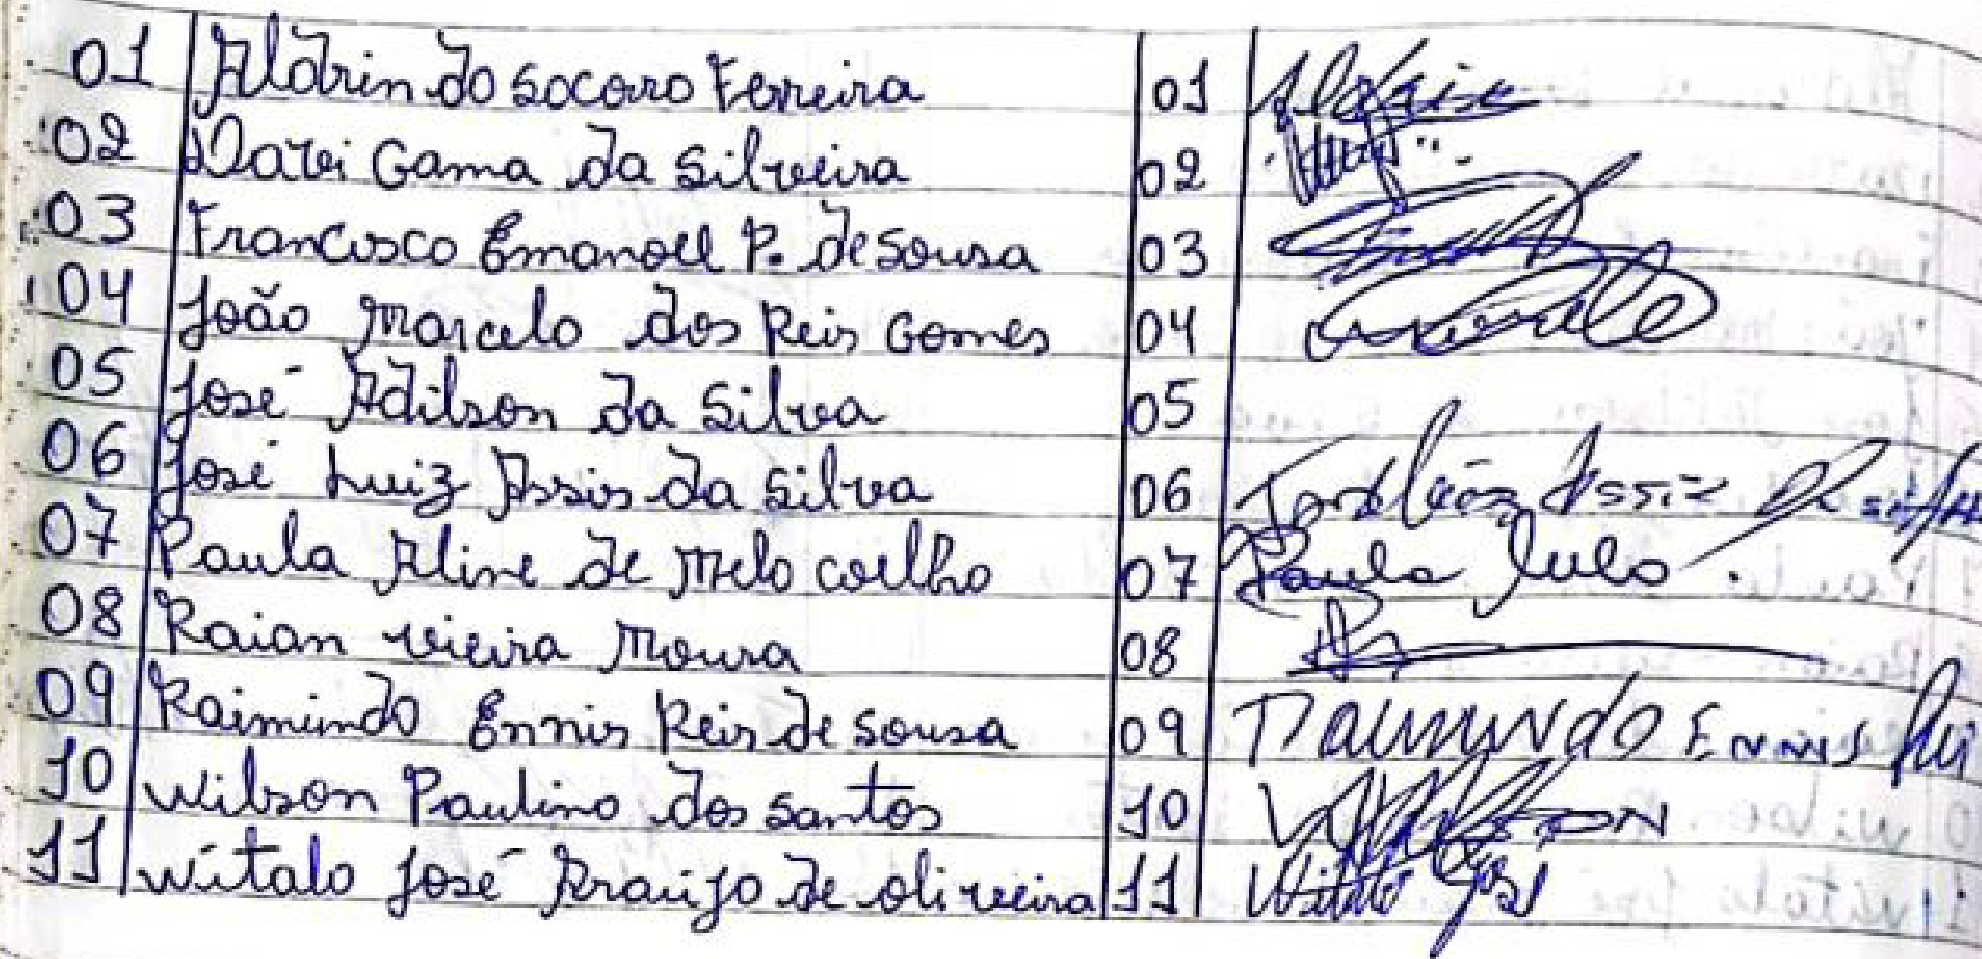 01 Aldrin do Socorro Ferreira 01 Aldrin
02 Davi Gama da Silveira 02
03 Francisco Emanoel P. de Sousa 03
04 João Marcelo dos Reis Gomes 04
05 José Adilson da Silva 05
06 José Luiz Assis da Silva 06 Assis
07 Paula Aline de Melo Coelho 07 Paula
08 Raian Vieira Moura 08
09 Raimundo Ennis Reis de Sousa 09 Raimundo Ennis Rei
10 Wilson Paulino dos Santos 10
11 Witalo José Araujo de Oliveira 11 Witalo José